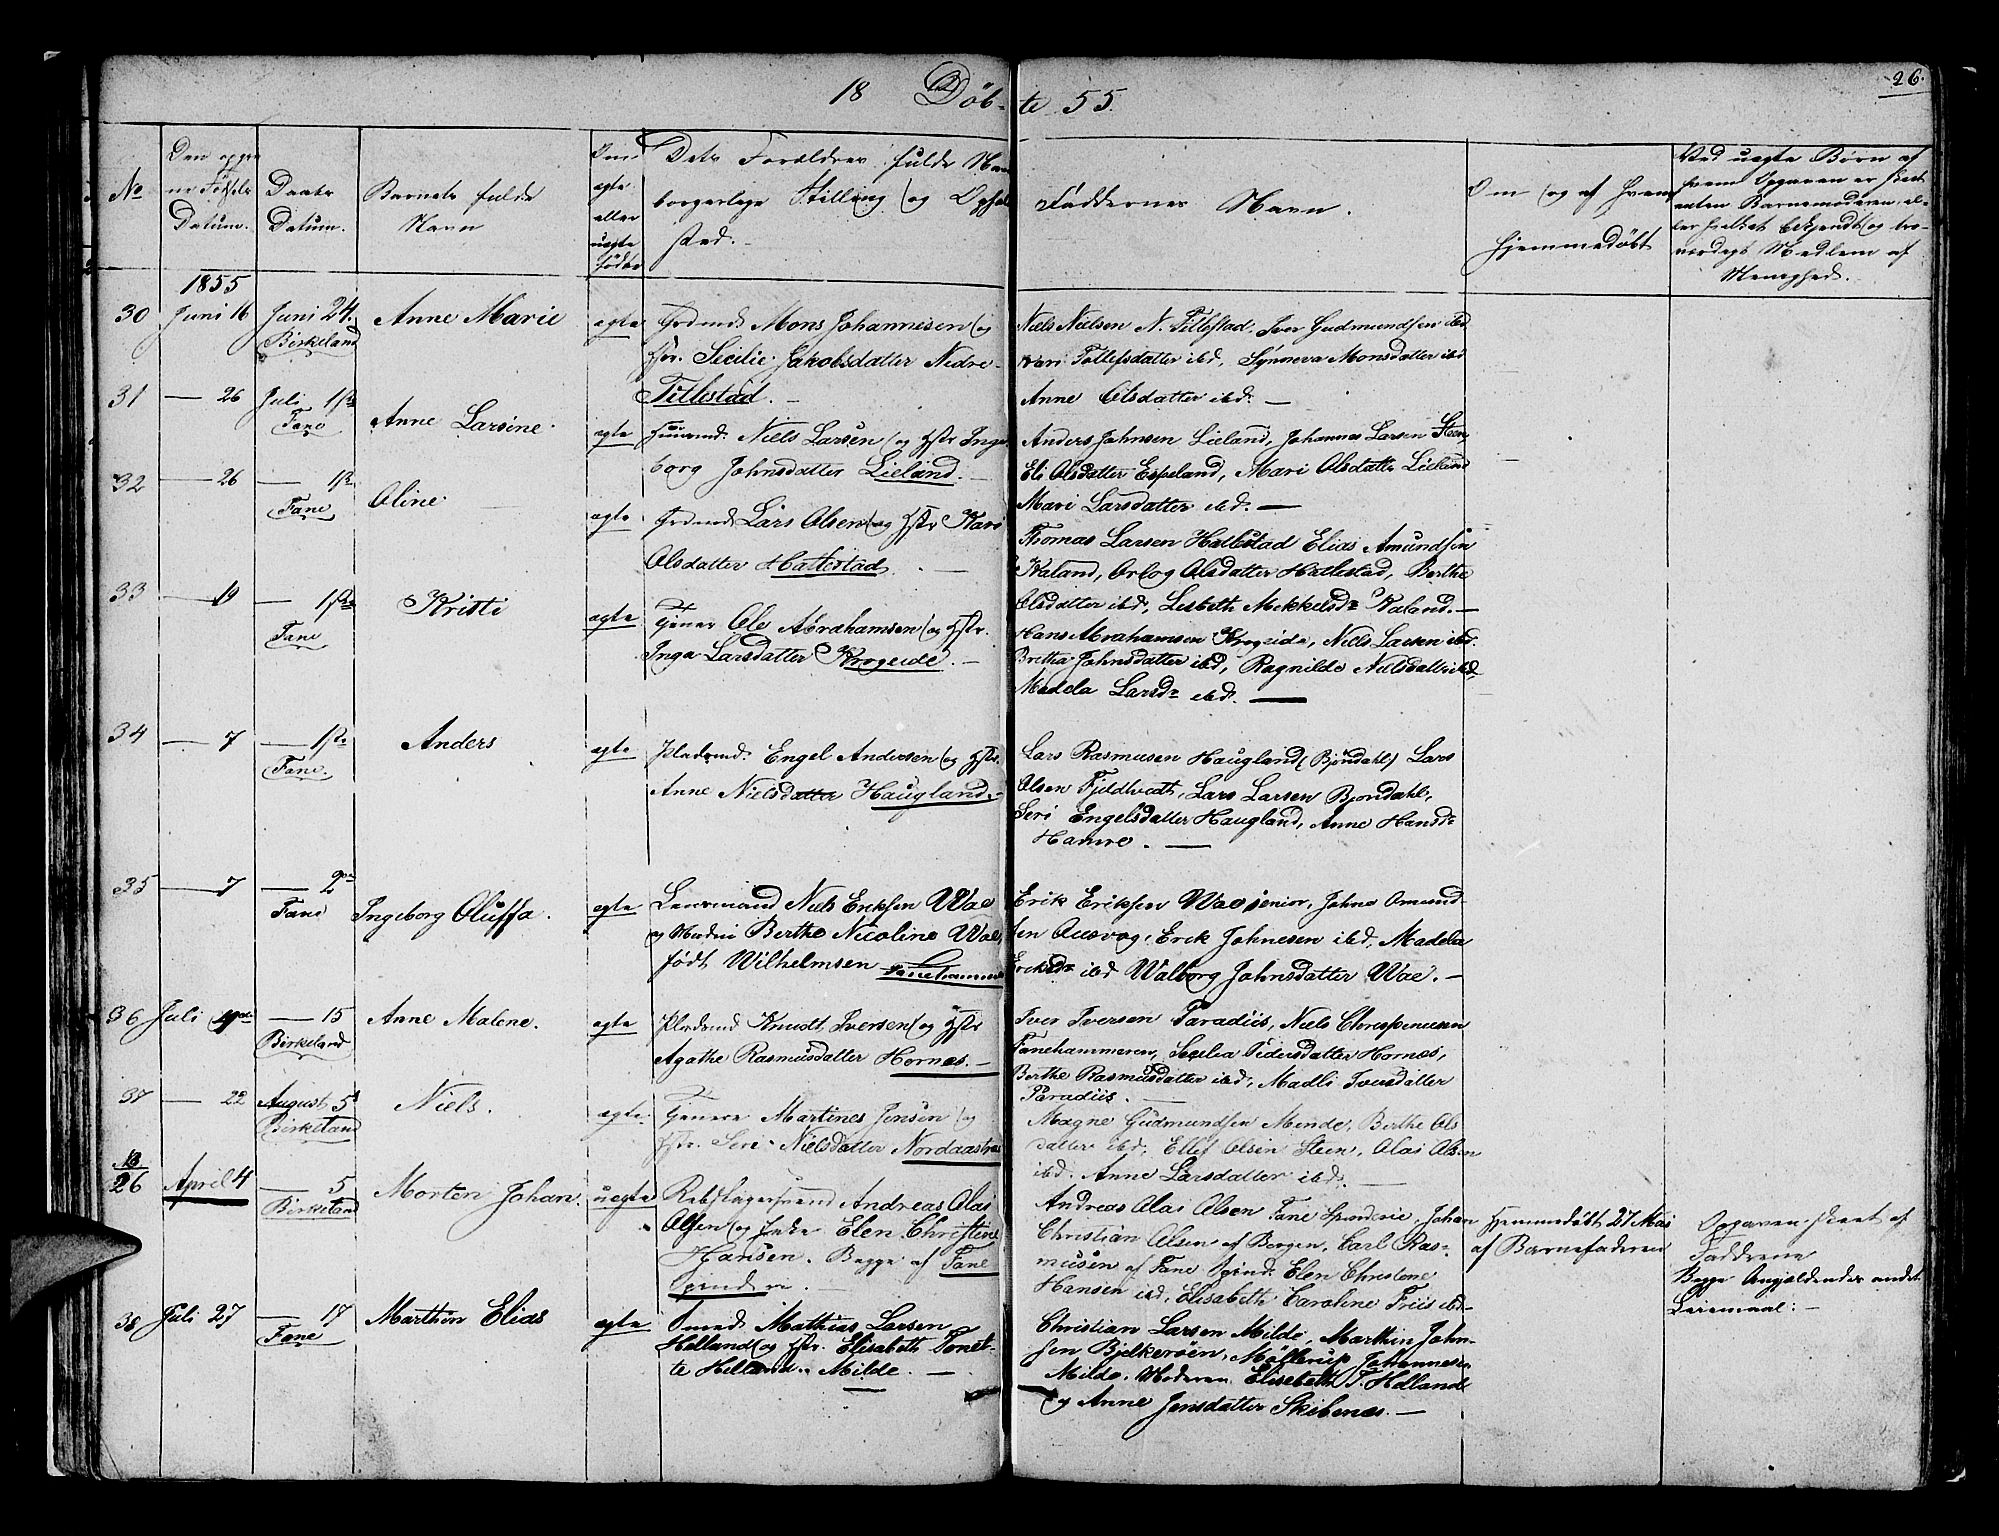 18 Døb-
te 55.
26.
No
Den opgi
ne Fødsels
Datum.
Daabs
Datum.
Barnets fulde
Navn
Om
ægte
eller
uægte
født
Dets Forældres fulde Nav
borgerlige Stilling og Opho
sted.
Faddernes Navn.
Om og af hvem
hjemmedøbt
Ved uægte Børn af
hvem Opgaven er skeet
enten Barnemoderen, el-
ler hvilket bekjendt og tro-
værdigt Medlem af
Menighed.
1855
30 Juni 16 Juni 24. Birkeland Anne Marie ægte
Grdmd. Mons Johannesen og
Hstr. Secilie Jakobsdatter Nedre
Tillestad.
Niels Nielsen N. Tillestad, Iver Gudmundsen ibd
Kari Tollefsdatter ibd, Synneva Monsdatter ibd
Anne Olsdatter ibd.
31 — 26 Juli 1ste Fane Anne Larsine ægte
Huusmd. Niels Larsen og Hstr Inge
borg Johnsdatter Lieland.
Anders Johnsen Lieland, Johannes Larsen Steen,
Eli Olsdatter Espeland, Mari Olsdatte Lieland
Mari Larsdatter ibd.
32 — 26 — 1ste Fane Oline ægte
Grdmd Lars Olsen og Hstr Kari
Olsdatter Hattestad.
Thomas Larsen Hattestad Elias Amundsen
Kaland, Orlog Olsdatter Hattestad, Berthe
Olsdatter ibd, Lisbeth Mikkelsdr Kaland.
33 — 19 — 1ste Fane Kristi ægte
Tjener Ole Abrahamsen og Hstr.
Inga Larsdatter Krogeide.
Hans Abrahamsen Krogeide, Niels Larsen ibd.
Britha Johnsdatter ibd, Ragnilde Nielsdatter ibd
Madela Larsdr ibd.
34 — 7 — 1ste Fane. Anders ægte
Pladsmd. Engel Andersen og Hstr.
Anne Nielsdatter Haugland.
Lars Rasmusen Haugland (Bjøndahl) Lars
Olsen Fjeldtvedt, Lars Larsen Bjøndahl,
Seri Engelsdatter Haugland, Anne Hansdr
Hamre.
35 — 7 — 2den Fane Ingeborg Oluffa. ægte
Lensmand Niels Eriksen Wae
og Madm Berthe Nicoline Wae,
født Wilhelmsen Fanehammer
Erik Eriksen Wae senior, Johne Omund-
sen Ausvog, Erik Johnesen ibd, Madela
Eriksdr ibd Walborg Johnsdatter Wae.
36 Juli — 15 Birkeland Anne Malene. ægte
Pladsmd Knudt Iversen og Hstr
Agathe Rasmusdatter Hornæs.
Iver Iversen Paradiis, Niels Chrespenusen
Fanehammeren, Secilia Pedersdatter Hornæs,
Berthe Rasmusdatter ibd, Madli Iversdatter
Paradiis.
37 — 22 August 5 Birkeland Niels. ægte.
Tjenere Martines Jensen og
Hstr. Seri Nielsdatter Nordaastræ
Magne Gudmundsen Minde, Berthe Ols
datter ibd, Ellef Olsen Steen, Olai Olsen
ibd. Anne Larsdatter ibd.
NB
26 April 4 — 5 Birkeland Morten Johan. uægte
Rebslagersvend Andreas Olai
Olsen og Enke Elen Christine
Hansen. Begge af Fane
Spinderie.
Andreas Olai Olsen Fane Spinderie. Johan
Christian Olsen af Bergen, Carl Ras-
musen af Fane Spind. Elen Christene
Hansen ibd, Elisabeth Caroline Friis ibd.
Hjemmedøbt 27 Mai
af Barnefaderen
Opgaven skeet af
Faddrene
Begge Angjældendes andet
Leiermaal:
38 Juli 27 — 17 Fane Marthin Elias ægte
Smed Mathias Larsen
Helland og Hstr. Elisabeth Tonet-
te Helland. Milde.
Christian Larsen Milde, Marthin John-
sen Bjelkerøen, Møllerup Johannesen
Milde. Moderen Elisebeth T. Helland
og Anne Jensdatter Skibenæs.